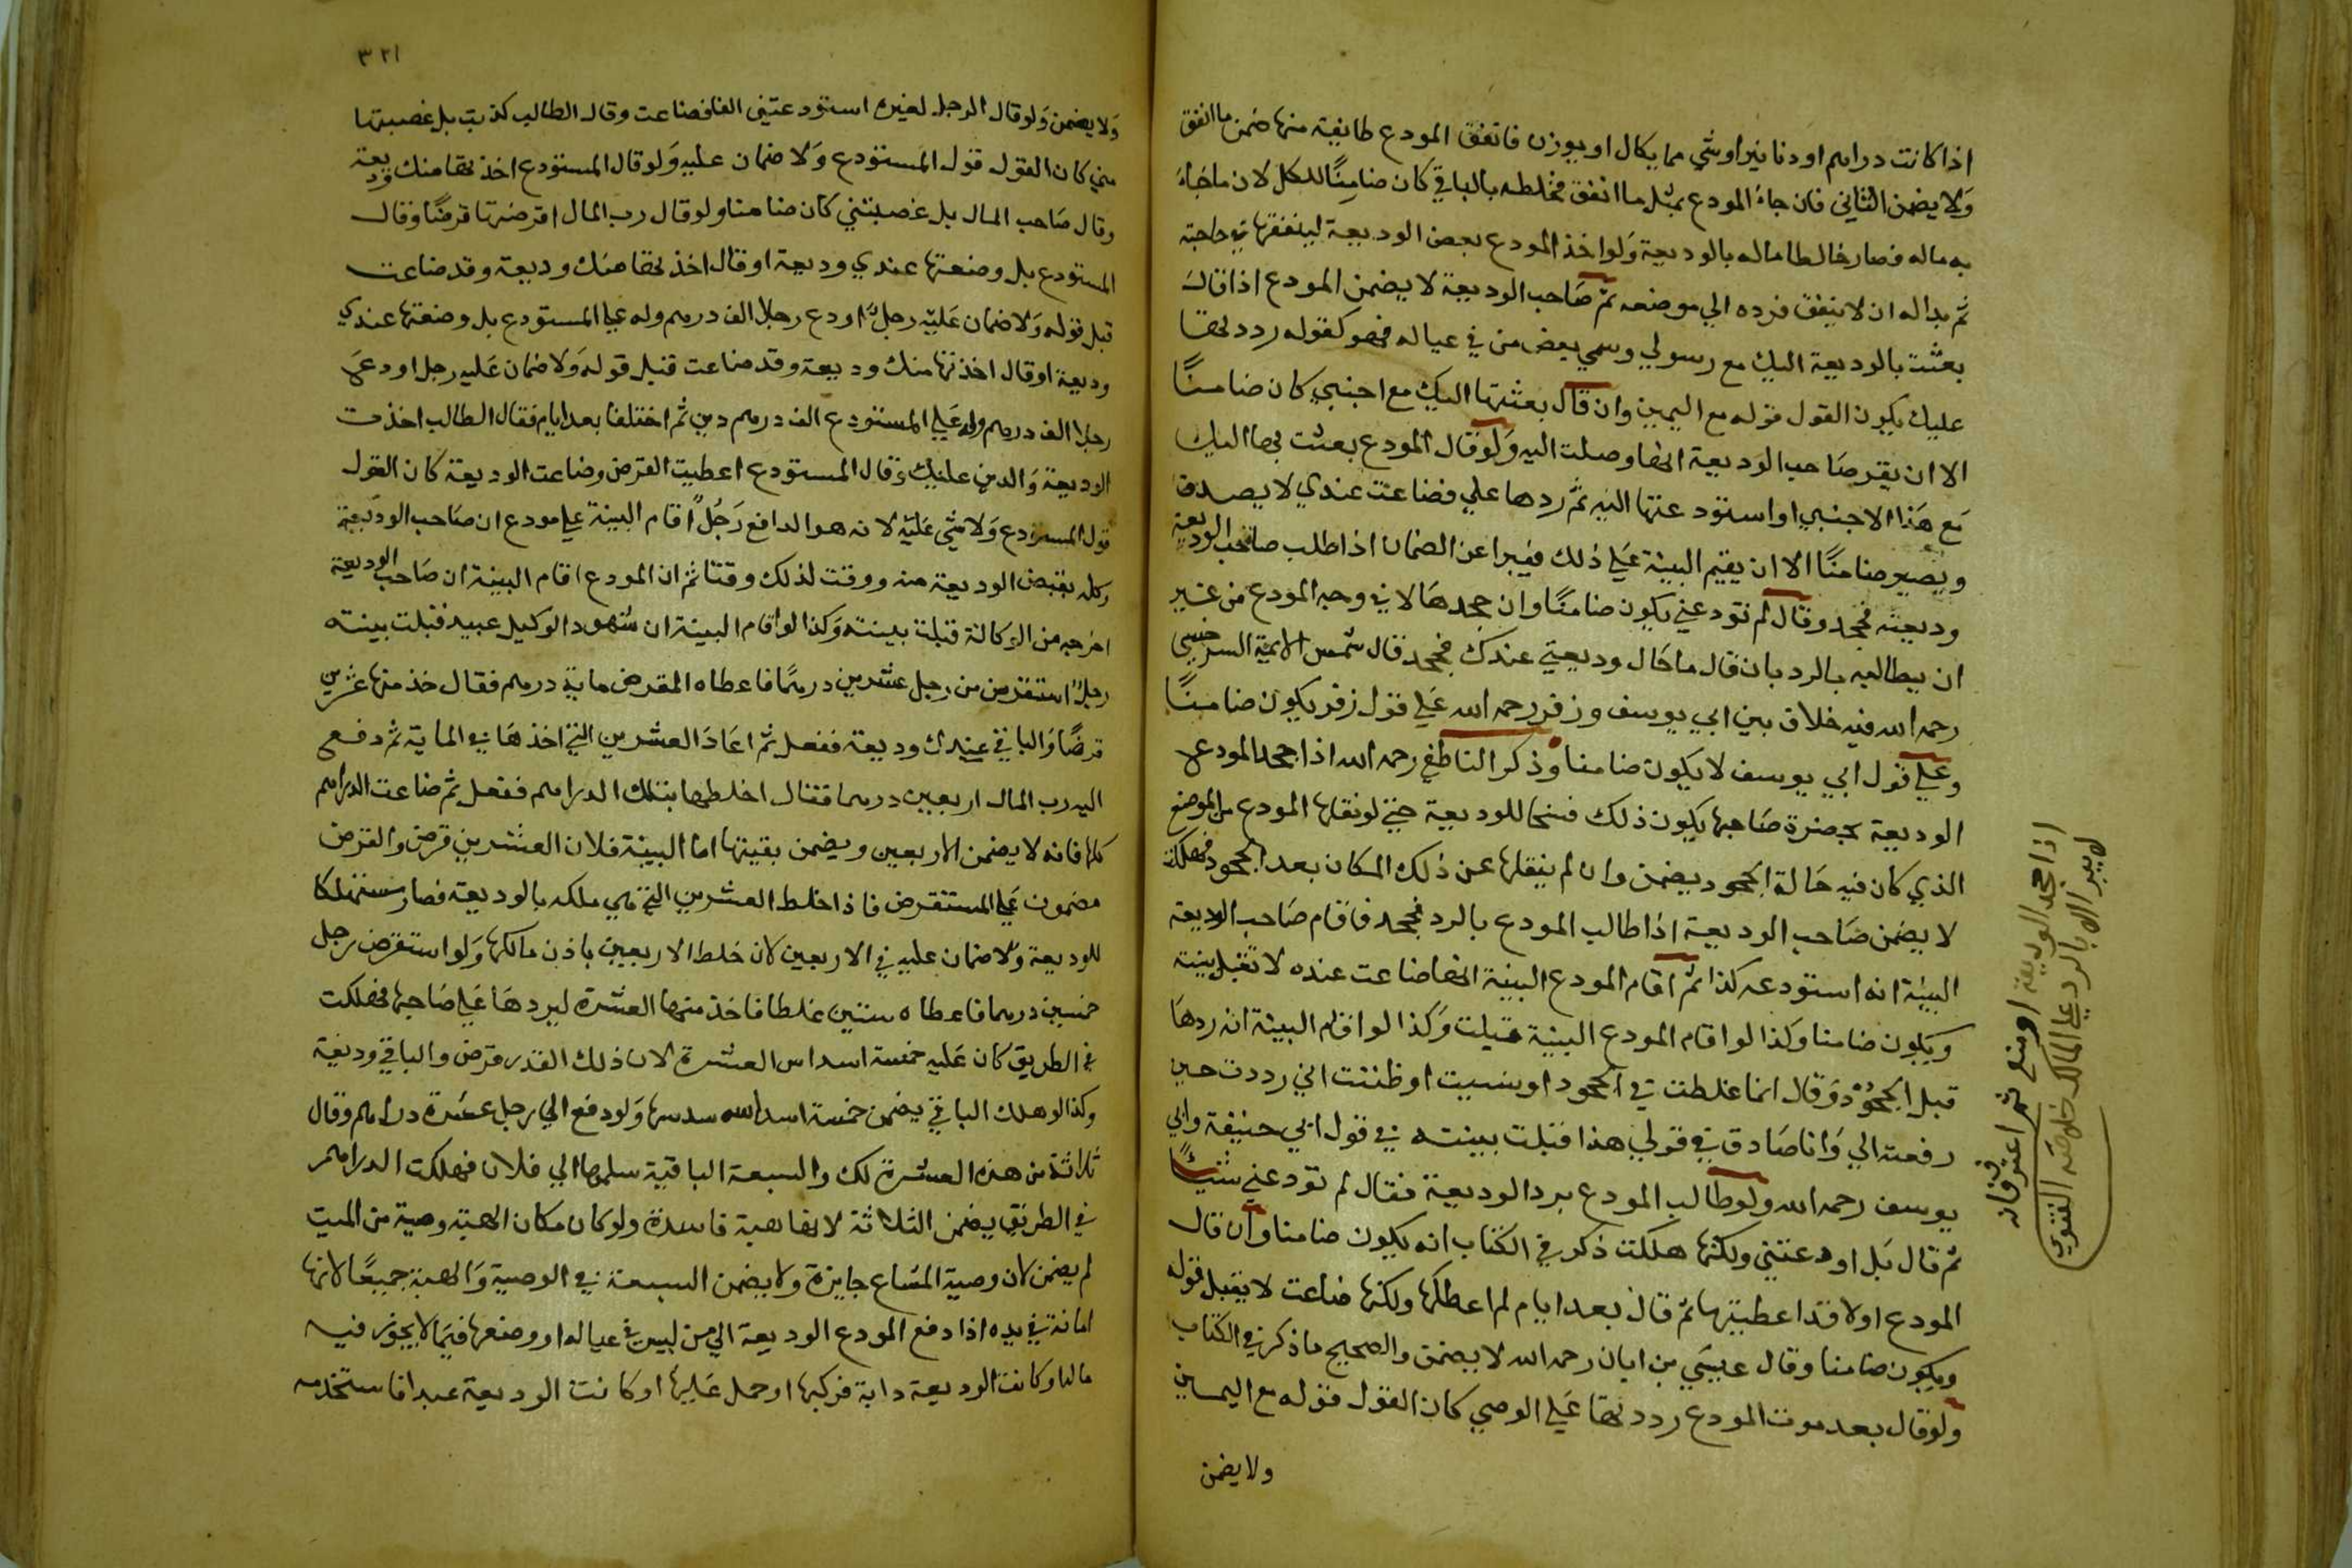 اذا كانت دراهم او دنانير او شي مما يكال او يوزن فانفق المودع طايفة منها ضمن ما انفق
ولا يضمن الثاني فان جاء المودع بمثل ما انفق فخلطه بالباقي كان ضامنًا للكل لان ما جاء
به ماله فصار خالطا ماله بالوديعة ولو اخذ المودع بعض الوديعة لينفقها في حاجته
ثم بدا له ان لا ينفق فرده الي موضعه ثم صاحب الوديعة لا يضمن المودع اذا قال
بعثت بالوديعة اليك مع رسولي وسمي بعض من في عياله فهو كقوله رددتها
عليك يكون القول قوله مع اليمين وان قال بعثتها اليك مع اجنبي كان ضامنًا
الا ان يقر صاحب الوديعة انها وصلت اليه ولو قال المودع بعثت بها اليك
مع هذا الاجنبي او استودعتها اليه ثم ردها علي فضاعت عندي لا يصدق
ويصير ضامنًا الا ان يقيم البينة علي ذلك فيبرا عن الضمان اذا طلب صاحب الوديعة
وديعته فجحد وقال لم تودعني يكون ضامنًا وان جحدها لا في وجه المودع من غير
ان يطالبه بالرد بان قال ما حال وديعتي عندك فجحد قال شمس الايمة السرخسي
رحمه الله فيه خلاف بين ابي يوسف وزفر رحمه الله علي قول زفر يكون ضامنًا
وعلي قول ابي يوسف لا يكون ضامنا وذكر الناطفي رحمه الله اذا جحد المودع
الوديعة بحضرة صاحبها يكون ذلك فسخا للوديعة حتي لو نقلها المودع من الموضع
الذي كان فيه حالة الجحود يضمن وان لم ينقلها عن ذلك المكان بعد الجحود فهلكت
لا يضمن صاحب الوديعة اذا طالب المودع بالرد فجحد فاقام صاحب الوديعة
البينة انه استودعه كذا ثم اقام المودع البينة انها ضاعت عنده لا تقبل بينته
ويكون ضامنا وكذا لو اقام المودع البينة قبلت وكذا لو اقام البينة انه ردها
قبل الجحود وقال انما غلطت في الجحود او نسيت او ظننت اني رددت حين
رفعته الي وانا صادق في قولي هذا قبلت بينته في قول ابي حنيفة وابي
يوسف رحمه الله ولو طالب المودع برد الوديعة فقال لم تودعني شيئًا
ثم قال بل اودعتني ولكنها هلكت ذكر في الكتاب انه يكون ضامنا وان قال
المودع اولا قد اعطيتها ثم قال بعد ايام لم اعطكها ولكنها ضاعت لا يقبل قوله
ويكون ضامنا وقال عيسي بن ابان رحمه الله لا يضمن والصحيح ما ذكر في الكتاب
ولو قال بعد موت المودع رددتها علي الوصي كان القول قوله مع اليمين
ولا يضمن
اذا جحد الوديعة او منع ثم اعترف فانه
لا يبرا الا بالرد علي المالك خلاصة الفتوي
٣٢١
ولا يضمن ولو قال الرجل لغيره استودعتني الفا فضاعت وقال الطالب كذبت بل غصبتها
مني كان القول قول المستودع ولا ضمان عليه ولو قال المستودع اخذتها منك وديعة
وقال صاحب المال بل غصبتني كان ضامنا ولو قال رب المال اقرضتها قرضًا وقال
المستودع بل وضعتها عندي وديعة او قال اخذتها منك وديعة وقد ضاعت
قبل قوله ولا ضمان عليه رجل اودع رجلا الف درهم وله علي المستودع بل وضعتها عندي
وديعة او قال اخذتها منك وديعة وقد ضاعت قبل قوله ولا ضمان عليه رجل اودع
رجلا الف درهم وله علي المستودع الف درهم دين ثم اختلفا بعد ايام فقال الطالب اخذت
الوديعة والدين عليك وقال المستودع اعطيت القرض وضاعت الوديعة كان القول
قول المستودع ولا شي عليه لانه هو الدافع رجلٌ اقام البينة علي مودع ان صاحب الوديعة
وكله بقبض الوديعة منه ووقت لذلك وقتا ثم ان المودع اقام البينة ان صاحب الوديعة
اخرجه من الوكالة قبلت بينته وكذا لو اقام البينة ان شهود الوكيل عبيد قبلت بينته
رجل استقرض من رجل عشرين درهمًا فاعطاه المقرض ماية درهم فقال خذ منها عشرين
قرضًا والباقي عندك وديعة ففعل ثم اعاد العشرين التي اخذها في الماية ثم دفع
اليه رب المال اربعين درهما فقال اخلطها بتلك الدراهم ففعل ثم ضاعت الدراهم
كلها فانه لا يضمن الاربعين ويضمن بقيتها اما البينة فلان العشرين قرض والقرض
مضمون علي المستقرض فاذا خلط العشرين التي هي ملكه بالوديعة فصار مستهلكا
للوديعة ولا ضمان عليه في الاربعين لان خلط الاربعين باذن مالكها ولو استقرض رجل
خمسين درهما فاعطاه ستين غلطا فاخذ منها العشرة ليردها علي صاحبها فهلكت
في الطريق كان عليه خمسة اسداس العشرة لان ذلك القدر قرض والباقي وديعة
وكذا لو هلك الباقي يضمن خمسة اسداسه ولو دفع الي رجل عشرة دراهم وقال
ثلاثة من هذه العشرة لك والسبعة الباقية سلمها الي فلان فهلكت الدراهم
في الطريق يضمن الثلاثة لانها هبة فاسدة ولو كان مكان الهبة وصية من الميت
لم يضمن لان وصية المشاع جايزة ولا يضمن السبعة في الوصية والهبة جميعًا لانها
امانة في يده اذا دفع المودع الوديعة الي من ليس في عياله او وضعها فيما لا يحوز فيه
ماله او كانت الوديعة دابة فركبها او حمل عليها او كانت الوديعة عبدا فاستخدمه